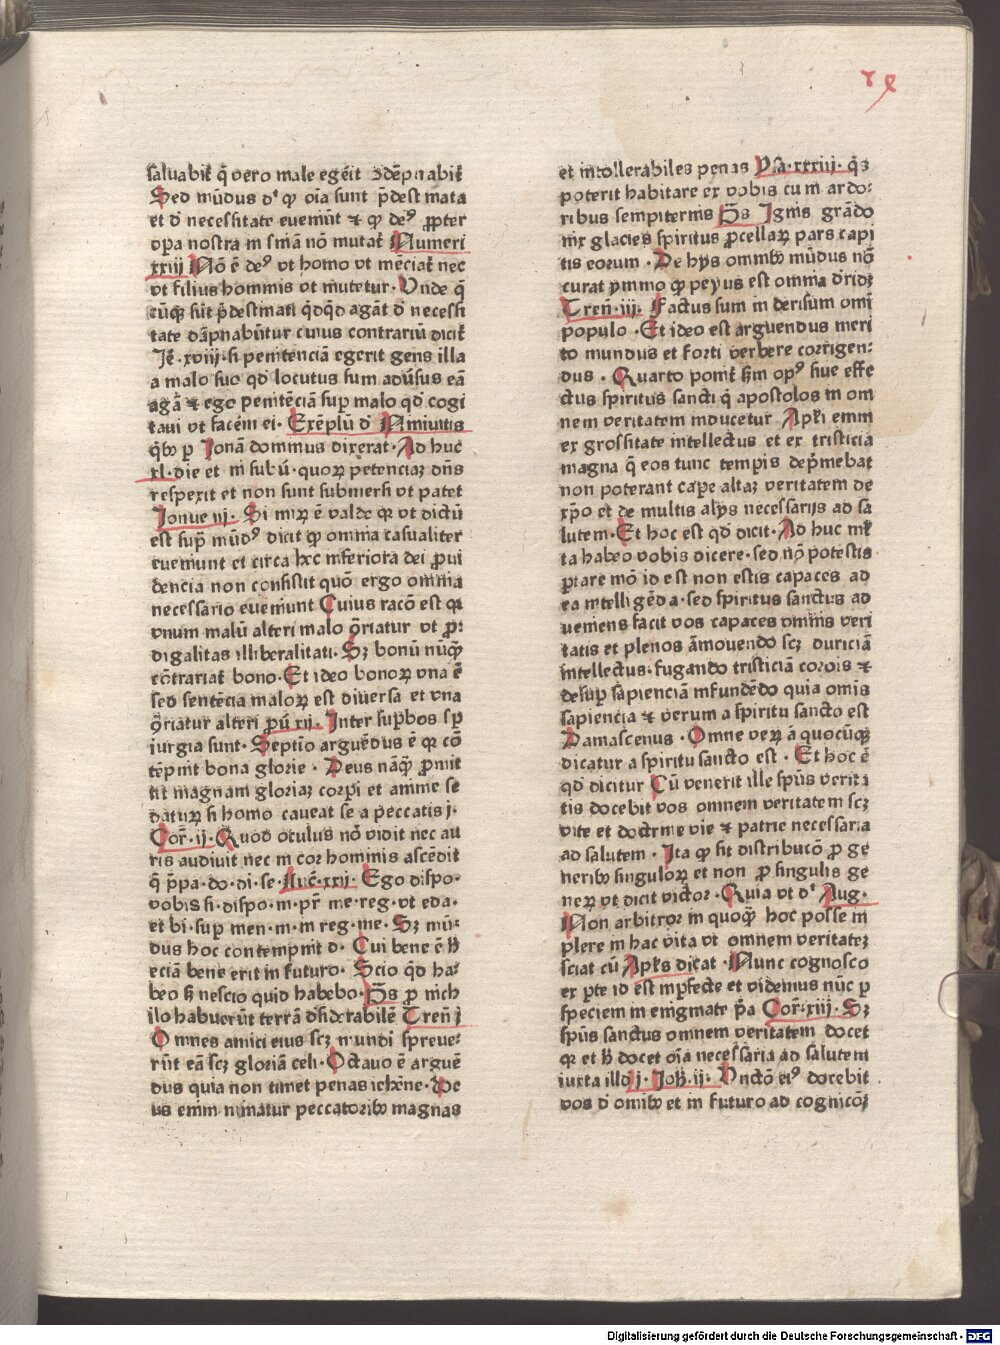 saluabit̄ q̄ vero male egēit ɔdēpnabit̄
Sed mūdus dꝰ ꝙ oīa sunt p̄destinata
et d̄ necessitate eueniūt ⁊ ꝙ deꝰ ꝓpter
oꝑa nostra in sn̄ia nō mutat̄ Numeri
xxiij Nō ē deꝰ vt homo vt mēciat̄ nec
vt filius hominis vt mutetur · Vnde q̄
cūqꝫ sūt p̄destinati q̄dqd agāt d̄ necessi
tate dāpnabūtur cuius contrariū dicit̄
Jeȓ · xviij · si penitenciā egerit gens illa
a malo suo qd locutus sum adūsus eā
agā ⁊ ego penitēciā suꝑ malo qd cogi
taui vt facem ei · Exēplū d̄ Niniuitis
qͥbꝰ ꝑ Jonā dominus dixerat · Ad huc
xl · die et ni subū · quoꝝ petenciaꝫ dn̄s
respexit et non sunt submersi vt patet
Jonue iij · Si mirꝝ ē valde qꝛ vt dictū
est suꝑ mūdꝰ dicit ꝙ omnia casualiter
eueniunt et circa hec inferiora dei ꝓui
dencia non consistit quō ergo omnia
necessario eueniunt Cuius racō est qꝛ
vnum malū alteri malo ɔ̄riatur vt ꝓ:
digalitas illiberalitati · Sꝫ bonū nūqꝫ
cōtrariat̄ bono · Et ideo bonoꝝ vna ē
sed sentēcia maloꝝ est diuersa et vna
ɔ̄riatur alteri ꝓū xij · Inter suꝑbos sꝑ
iurgia sunt · Septīo arguēdus ē qꝛ cō
tēpnit bona glorie · Deus nāqꝫ ꝓmit
tit magnam gloriaꝫ corpi et anime se
daturꝝ si homo caueat se a peccatis j ·
Coȓ · ij · Quod oculus nō vidit nec au
ris audiuit nec in cor hominis ascēdit
q̄ p̄pa · do · di · se · Luc̄ · xxij · Ego dispo ·
vobis si · dispo · m · pr̄ me · reg · vt eda ·
et bi · suꝑ men · m · in reg · me · Sꝫ mū:
dus hoc contempnit d · Cui bene ē h̄
eciā bene erit in futuro · Scio qd ha:
beo ꝫ nescio quid habebo · P̄s ꝑ nich
ilo habuerūt terrā d̓siderabilē Tren̄ j
Omnes amici eius scꝫ mundi spreue:
rūt eā scꝫ gloriā celi · Octauo ē arguē
dus quia non timet penas iehēne · De
us enim minatur peccatoribꝰ magnas
et intollerabiles penas Psa · xxxiij · qͥs
poterit habitare ex vobis cum ardo:
ribus sempiternis P̄s Ignis grādo
nix glacies spiritus ꝓcellaꝝ pars capi
tis eorum · De hijs omnibꝰ mūdus nō
curat ymmo ꝙ peyus est omnia d̓ridꝫ
Tren̄ · iij · Factus sum in derisum omī
populo · Et ideo est arguendus meri
to mundus et forti verbere corrigen:
dus · Quarto ponit̄ ẜm opꝰ siue effe
ctus spiritus sancti q̄ apostolos in om
nem veritatem inducetur Apl̄i enim
ex grossitate intellectus et ex tristicia
magna q̄ eos tunc tempis dep̄mebat
non poterant caꝑe altaꝫ veritatem de
xp̄o et de multis alijs necessarijs ad sa
lutem · Et hoc est qd dicit · Ad huc ml̄
ta habeo vobis dicere · sed nō potestis
ꝑtare mō id est non estis capaces ad
ea intelligēda · sed spiritus sanctus ad
ueniens facit vos capaces omnis veri
tatis et plenos āmouendo scꝫ duriciā
intellectus · fugando tristiciā cordis ⁊
desuꝑ sapienciā infundēdo quia omīs
sapiencia ⁊ verum a spiritu sancto est
Damascenus · Omne verꝝ a quocūqꝫ
dicatur a spiritu sancto est · Et hoc ē
qd dicitur Cū venerit ille spūs verita
tis docebit vos omnem veritatem scꝫ
vite et doctrine vie ⁊ patrie necessaria
ad salutem · Ita ꝙ sit distribucō ꝓ ge
neribꝰ singuloꝝ et non ꝓ singulis ge
neꝝ vt dicit victor · Quia vt dꝰ Aug ·
Non arbitror in quoqꝫ hoc posse in
plere in hac vita vt omnem veritateꝫ
sciat cū Apl̄s dicat · Nunc cognosco
ex ꝑte id est inꝑfecte et videmus nūc ꝑ
speciem in enigmate p̄a Coȓ · xiij · Sꝫ
spūs sanctus omnem veritatem docet
qꝛ et h̄ docet oīa necessaria ad salutem
iuxta illd j · Joh̄ · ij · Vnctō eiꝰ docebit
vos d̄ omībꝰ et in futuro ad cognicōꝫ
Digitalisierung gefördert durch die Deutsche Forschungsgemeinschaft - DFG